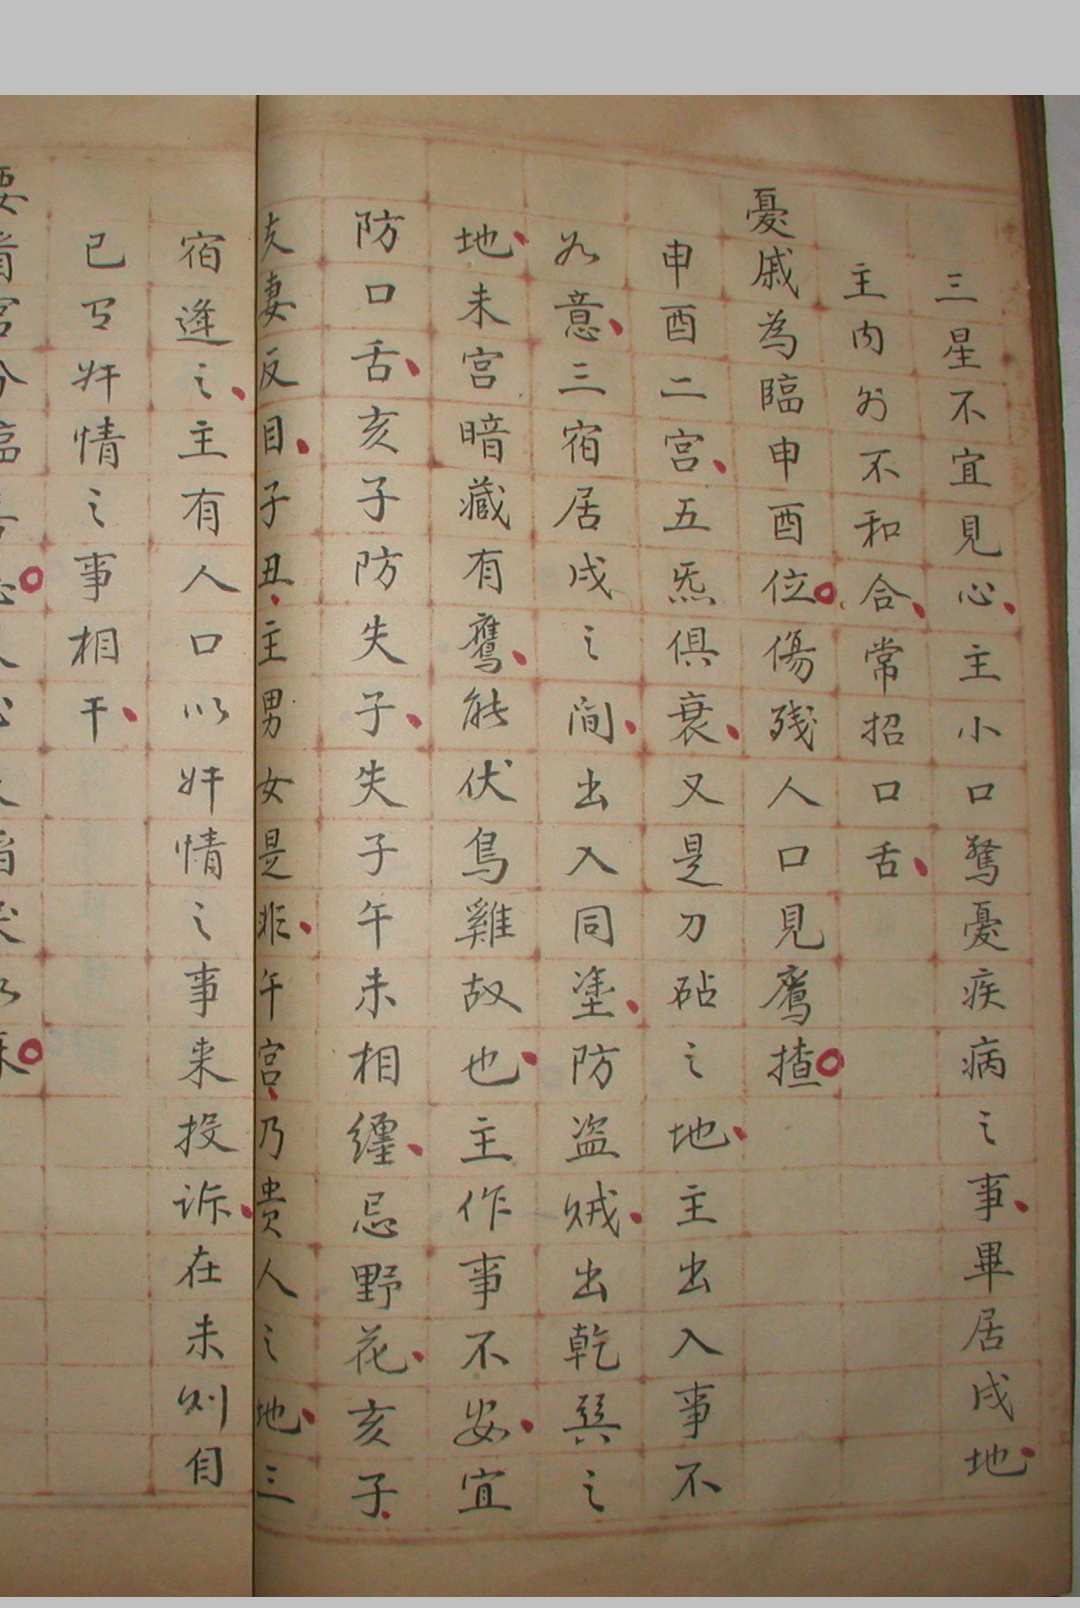 三星不宜見心主小口驚憂疾病之事畢居戌地
主内外不和合常招口舌
憂戚為臨申酉位傷残人口見鴈揸
申酉二宫五炁俱衰又是刀砧之地主出入事不
如意三宿居戌之間出入同塗防盗贼出乾巽之
地未宫暗藏有鷹能伏鳥雞故也主作事不安宜
防口舌亥子防失子失子午未相纏忌野花亥子
夫妻反目子丑主男女是非午宫乃貴人之地三
宿逢之主有人口以奸情之事来投诉在未则自
已有奸情之事相干